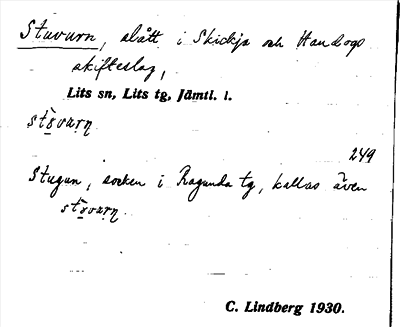 Stuvurn, slått i Skickja och Handogs
skifteslag,
Lits sn, Lits tg, Jämtl. l.
249
Stugun, socken i Ragunda tg, kallas även
C. Lindberg 1930.